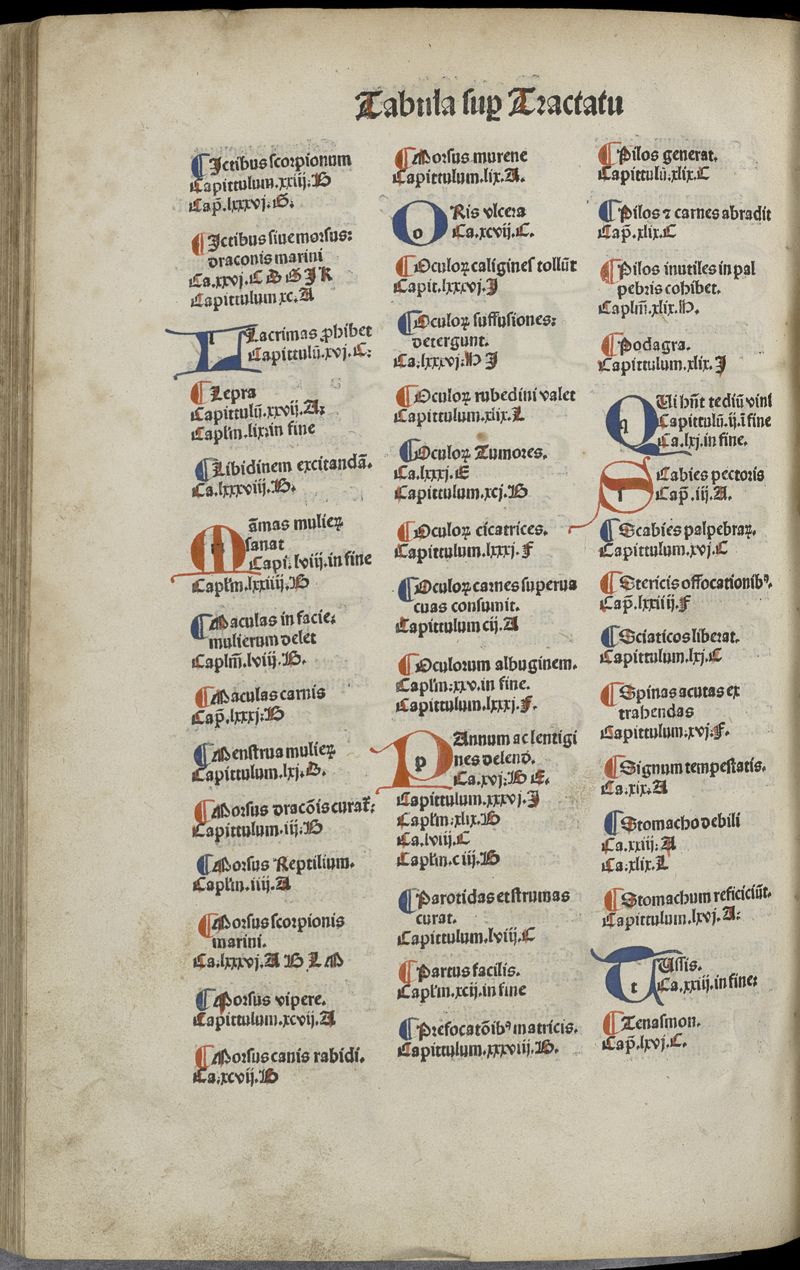 Tabula suꝑ Tractatu
¶Ictibus scorpionum
Capittulum.xxiij.B
Cap̃.lxxxvj.G.
¶Ictibus siue morsus:
draconis marini
Ca.xxvj.C D G I K
Capittulum xc.A
LLacrimas ꝓhibet
Capittulũ.xvj.C:
¶Lepra
Capittulũ.xxvij.A:
Caplm̃.lix:in fine
¶Libidinem excitandã.
Ca.lxxxviij.B.
Mãmas mulieꝝ
sanat
Capi.lviij.in fine
Caplm̃.lxxiiij.B
¶Maculas in facie:
mulierum delet
Caplm̃.lviij.B.
¶Maculas carnis
Cap̃.lxxxj:B
¶Menstrua mulieꝝ
Capittulum.lxj.D.
¶Morsus dracõis curat̃:
Capittulum.iij:B
¶Morsus Reptilium.
Caplm̃.iiij.A
¶Morsus scorpionis
marini.
Ca.lxxxvj.A B L M
¶Morsus vipere.
Capittulum.xcvij.A
¶Morsus canis rabidi.
Ca:xcvij.B
¶Morsus murene
Capittulum.lix.A.
ORis vlcera
Ca.xcvij.C.
¶Oculoꝝ caligines tollũt
Capit.lxxxvj.I
¶Oculoꝝ suffusiones:
detergunt.
Ca.lxxxvj:H I
¶Oculoꝝ rubedini valet
Capittulum.xlix.L
¶Oculoꝝ Tumores.
Ca.lxxxj.E
Capittulum.xcj.B
¶Oculoꝝ cicatrices.
Capittulum.lxxxj.F
¶Oculoꝝ carnes superua
cuas consumit.
Capittulum cij.A
¶Oculorum albuginem.
Caplm̃:xxv.in fine.
Capittulum.lxxxj.F.
PAnnum ac lentigi
nes delend̃.
Ca.xvj:B E.
Capittulum.xxxvj.I
Caplm̃:xlix.B
Ca.lviij.C
Caplm̃.ciij.B
¶Parotidas et strumas
curat.
Capittulum.lviij.C
¶Partus facilis.
Caplm̃.xcij.in fine
¶Prefocatõibꝰ matricis.
Capittulum.xxxviij.B.
¶Pilos generat.
Capittulũ.xlix.C
¶Pilos ⁊ carnes abradit
Cap̃.xlix.C
¶Pilos inutiles in pal
pebris cohibet.
Caplm̃.xlix.H.
¶Podagra.
Capittulum.xlix.I
QUi hñt tediũ vini
Capittulũ.ij.ĩ fine
Ca.lxj.in fine.
SCabies pectoris
Cap̃.iij.A.
¶Scabies palpebraꝝ.
Capittulum.xvj.C
¶Stericis offocationibꝰ.
Cap̃.lxxiiij.F
¶Sciaticos liberat.
Capittulum.lxj.C
¶Spinas acutas ex
trahendas
Capittulum.xvj.F.
¶Signum tempestatis.
Ca.xix.A
¶Stomacho debili
Ca.xxiij:A
Ca:xlix.L
¶Stomachum reficiciũt.
Capittulum.lxvj.A:
TUssis.
Ca.xxiij.in fine:
¶Tenasmon.
Cap̃.lxvj.C.